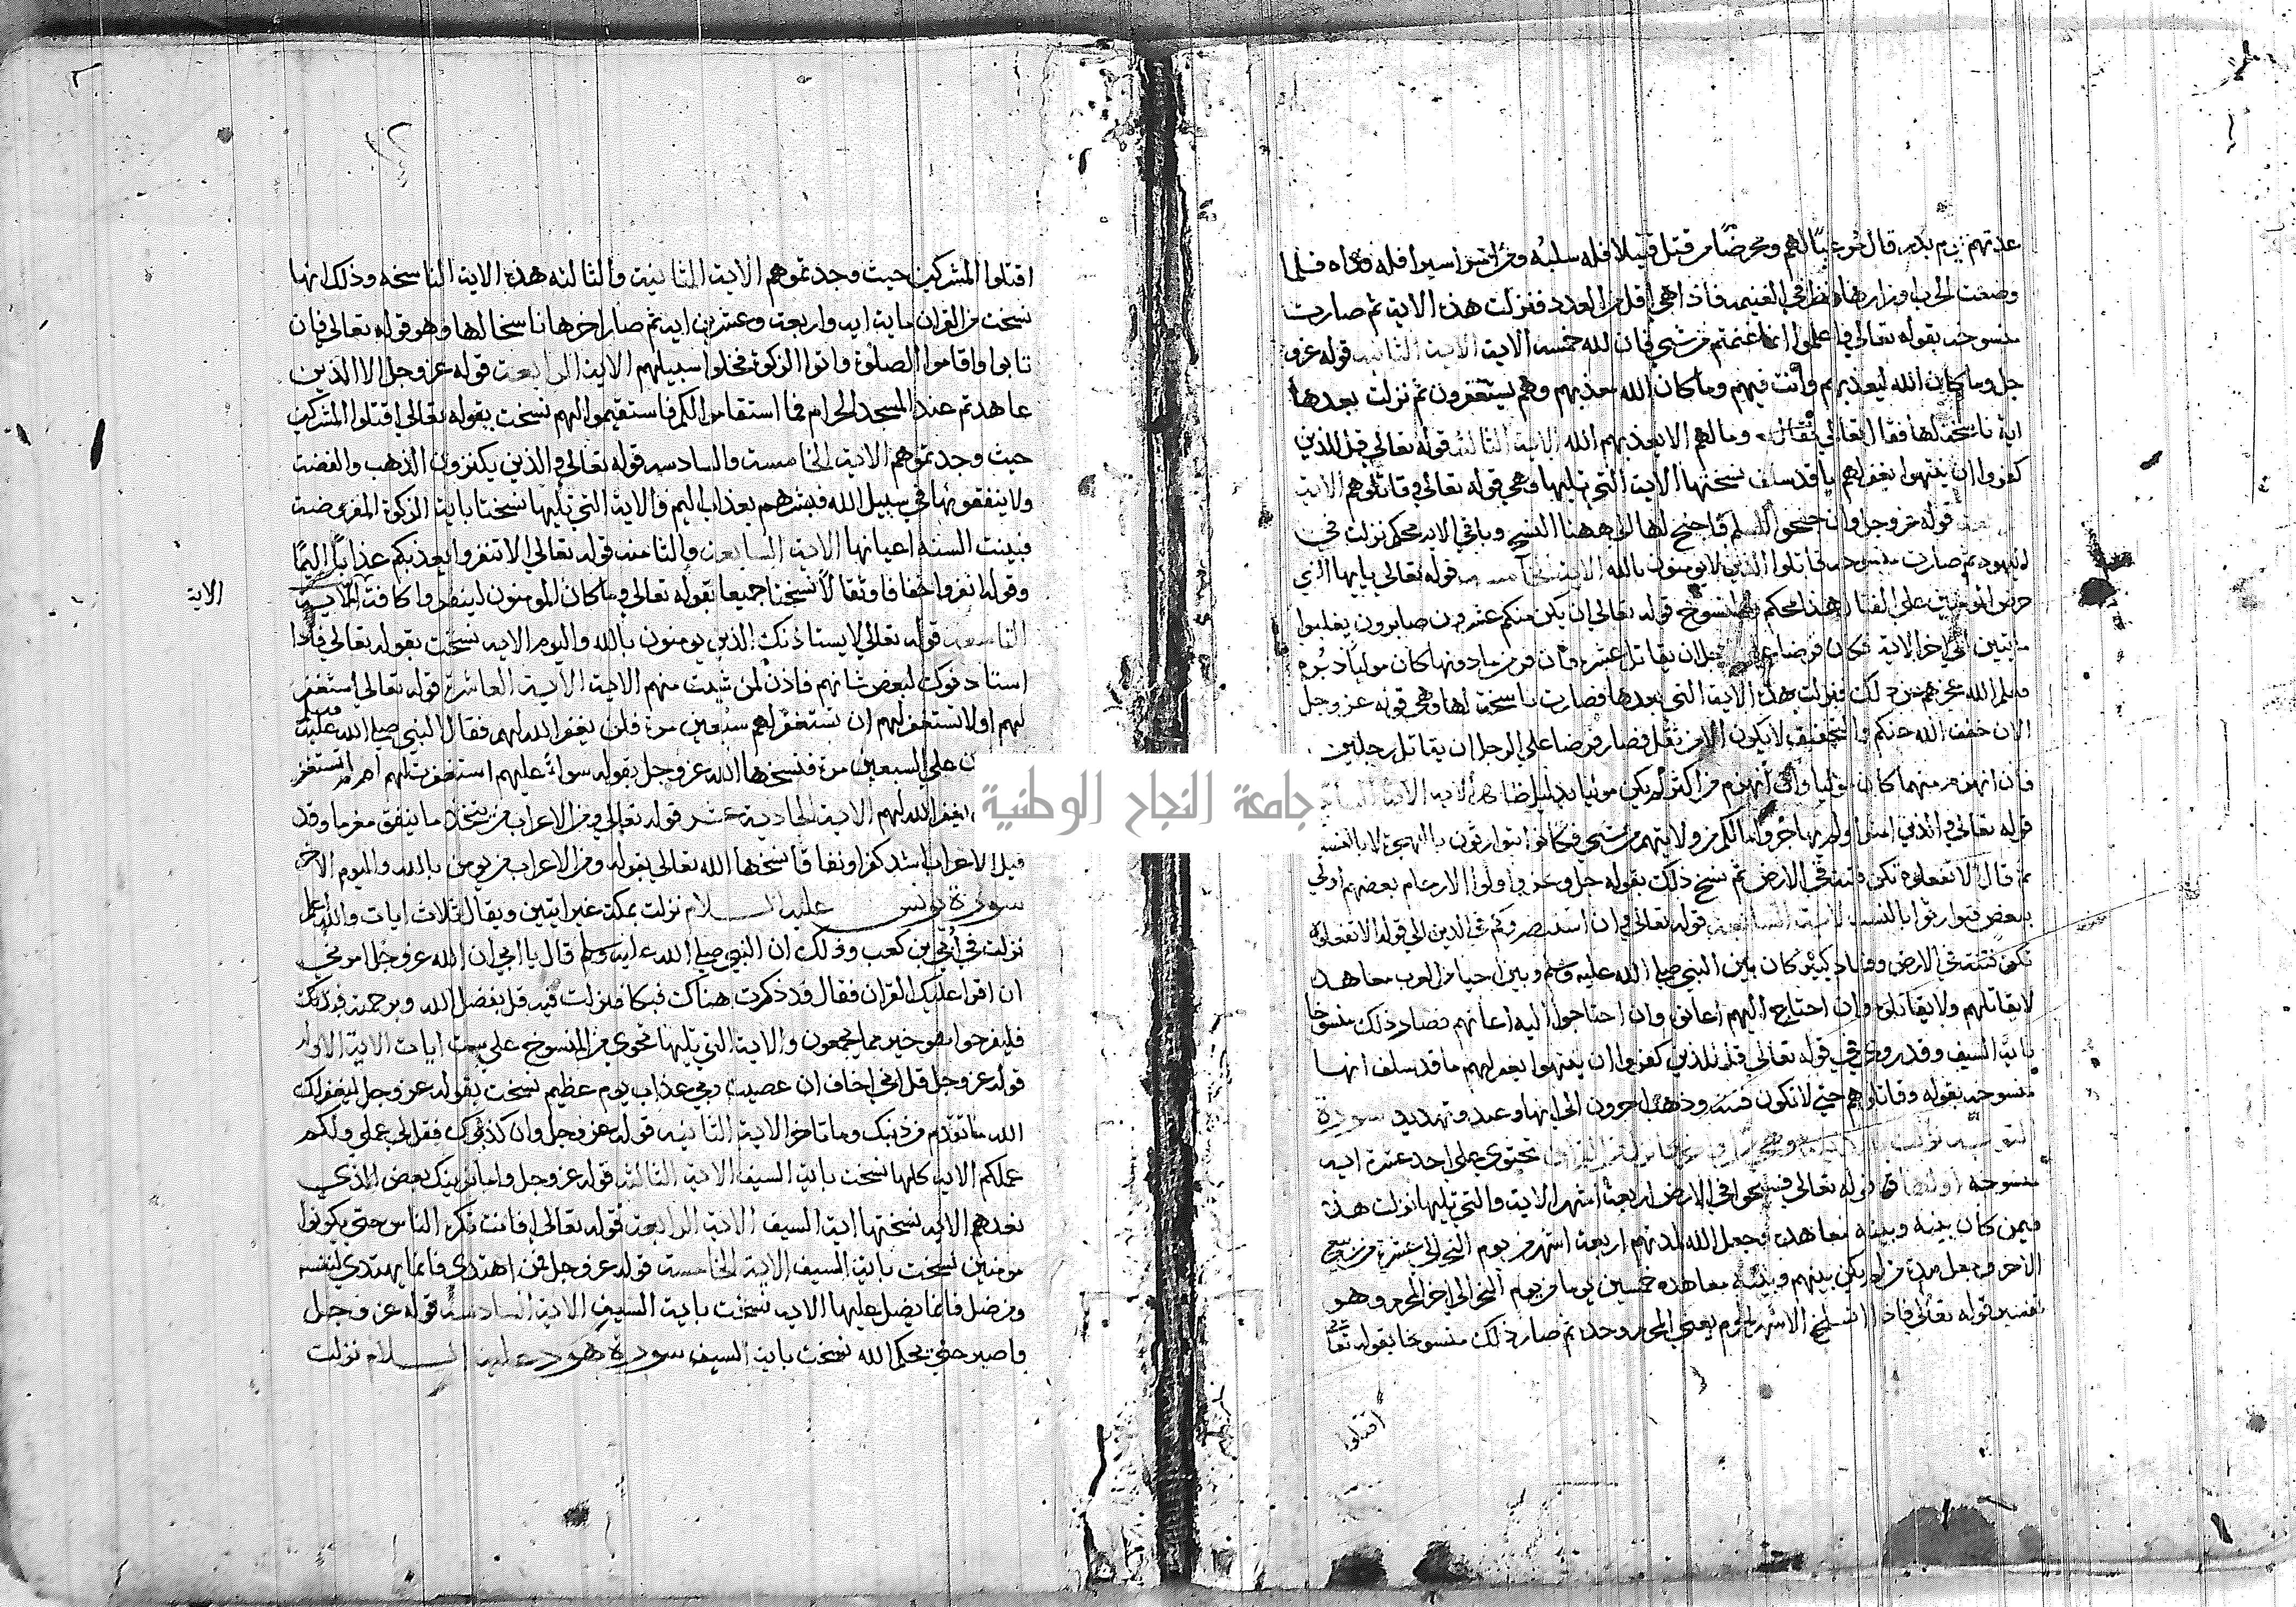 عدتهم يوم بدر قال مرغبا لهم ومحرضا من قتل قتيلا فله سلبه ومن اسر اسيرا فله فداه فلما
وضعت الحرب اوزارها نظر في الغنيمة فاذا هي اقل من العدد فنزلت هذه الاية ثم صارت
منسوخة بقوله تعالي واعلموا انما غنمتم من شي فان لله خمسه الاية الاية الثانية قوله عز و
جل وما كان الله ليعذبهم وانت فيهم وما كان الله معذبهم وهم يستغفرون ثم نزلت بعدها
اية ناسخة لها فقال تعالي وما لهم الا يعذبهم الله الاية الثالثة قوله تعالي قل للذين
كفروا ان ينتهوا يغفر لهم ما قد سلف نسختها الاية التي تليها وهي قوله تعالي وقاتلوهم الاية
قوله عز وجل وان جنحوا للسلم فاجنح لها الي ههنا النسخ وباقي الاية محكم نزلت في
اليهود ثم صارت منسوخة قاتلوا الذين لا يومنون بالله الاية قوله تعالي يايها النبي
حرض المومنين علي القتال هذا محكم والمنسوخ قوله تعالي ان يكن منكم عشرون صابرون يغلبوا
مايتين الي اخر الاية فكان فرضا علي الرجل ان يقاتل عشرة فان فر من ما دونها كان موليا دبره
فعلم الله عجزهم عن ذلك فنزلت هذه الاية التي بعدها فصارت ناسخة لها وهي قوله عز وجل
الان خفف الله عنكم والتخفيف لا يكون الا من ثقل فصار فرضا علي الرجل ان يقاتل رجلين
فان انهزم منهما كان موليا وان انهزم من اكثر لم يكن موليا بدليل ظاهر الاية الاية
قوله تعالي والذين امنوا ولم يهاجروا مالكم من ولايتهم من شي فكانوا يتوارثون بالهجرة لا بالنسب
ثم قال الا تفعلوه تكن فتنة في الارض ثم نسخ ذلك بقوله جل وعز واولوا الارحام بعضهم اولي
ببعض فتوارثوا بالنسب الاية قوله تعالي وان استنصروكم في الدين الي قوله الا تفعلوه
تكن فتنة في الارض وفساد كبير كان بين النبي صلي الله عليه وسلم وبين احيا من العرب معاهدة
لا يقاتلهم ولا يقاتلوه وان احتاج اليهم اعانوه وان احتاجوا اليه اعانهم فصار ذلك منسوخا
باية السيف وقد روي في قوله تعالي قل للذين كفروا ان ينتهوا يغفر لهم ما قد سلف انها
منسوخة بقوله وقاتلوهم حتي لا تكون فتنة وذهب اخرون الي انها وعيد وتهديد سورة
التوبة نزلت تحتوي علي احد عشرة اية
منسوخة اولها قوله تعالي فسيحوا في الارض اربعة اشهر الاية والتي تليها نزلت هذه
فيمن كان بينه وبينه معاهدة فجعل الله مدتهم اربعة اشهر من يوم النحر الي عشرة من ربيع
الاخر وجعل مدة من لم يكن بينهم وبينه معاهدة خمسين يوما من يوم النحر الي اخر المحرم وهو
تفسير قوله تعالي فاذا انسلخ الاشهر الحرم يعني المحرم وحده ثم صار ذلك منسوخا بقوله تعالي
اقتلوا
اقتلوا المشركين حيث وجدتموهم الاية الثانية والثالثة هذه الاية الناسخة وذلك انها
نسخت من القران ماية اية واربعة وعشرين اية ثم صار اخرها ناسخا لها وهو قوله تعالي فان
تابوا واقاموا الصلوة واتوا الزكوة فخلوا سبيلهم الاية الرابعة قوله عز وجل الا الذين
عاهدتم عند المسجد الحرام فما استقاموا لكم فاستقيموا لهم نسخت بقوله تعالي اقتلوا المشركين
حيث وجدتموهم الاية الخامسة والسادسة قوله تعالي والذين يكنزون الذهب والفضة
ولا ينفقونها في سبيل الله فبشرهم بعذاب اليم والاية التي تليها نسختا باية الزكوة المفروضة
فبينت السنة اعيانها الاية السابعة والثامنة قوله تعالي الا تنفروا يعذبكم عذابا اليما
وقوله انفروا خفافا وثقالا نسختا جميعا بقوله تعالي وما كان المومنون لينفروا كافة الاية
الاية
التاسعة قوله تعالي لا يستاذنك الذين يومنون بالله واليوم الاية نسخت بقوله تعالي فاذا
استاذنوك لبعض شانهم فاذن لمن شيت منهم الاية الاية العاشرة قوله تعالي استغفر
لهم او لا تستغفر لهم ان تستغفر لهم سبعين مرة فلن يغفر الله لهم فقال النبي صلي الله عليه وسلم
علي السبعين مرة فنسخها الله عز وجل بقوله سواء عليهم استغفرت لهم ام لم تستغفر
يغفر الله لهم الاية الحادية عشر قوله تعالي ومن الاعراب من يتخذ ما ينفق مغرما وقد
قيل الاعراب اشد كفرا ونفاقا نسخها الله تعالي بقوله ومن الاعراب من يومن بالله واليوم الاخر
سورة يونس عليه السلام نزلت بمكة غير ايتين ويقال ثلاث ايات والله اعلم
نزلت في ابي بن كعب وذلك ان النبي صلي الله عليه وسلم قال يا ابي ان الله عز وجل امرني
ان اقرا عليك القران فقال قد ذكرت هناك فبكا فنزلت فيه قل بفضل الله وبرحمته فبذلك
فليفرحوا هو خير مما يجمعون والاية التي تليها تحوي من المنسوخ علي ست ايات الاية الاولي
قوله عز وجل قل اني اخاف ان عصيت ربي عذاب يوم عظيم نسخت بقوله عز وجل ليغفر لك
الله ما تقدم من ذنبك وما تاخر الاية الثانية قوله عز وجل وان كذبوك فقل لي عملي ولكم
عملكم الاية كلها نسخت باية السيف الاية الثالثة قوله عز وجل واما نرينك بعض الذي
نعدهم الاية نسختها اية السيف الاية الرابعة قوله تعالي افانت تكره الناس حتي يكونوا
مومنين نسخت باية السيف الاية الخامسة قوله عز وجل فمن اهتدي فانما يهتدي لنفسه
ومن ضل فانما يضل عليها الاية نسخت باية السيف الاية السادسة قوله عز وجل
واصبر حتي يحكم الله نسخت باية السيف سورة هود عليه السلام نزلت
جامعة النجاح الوطنية